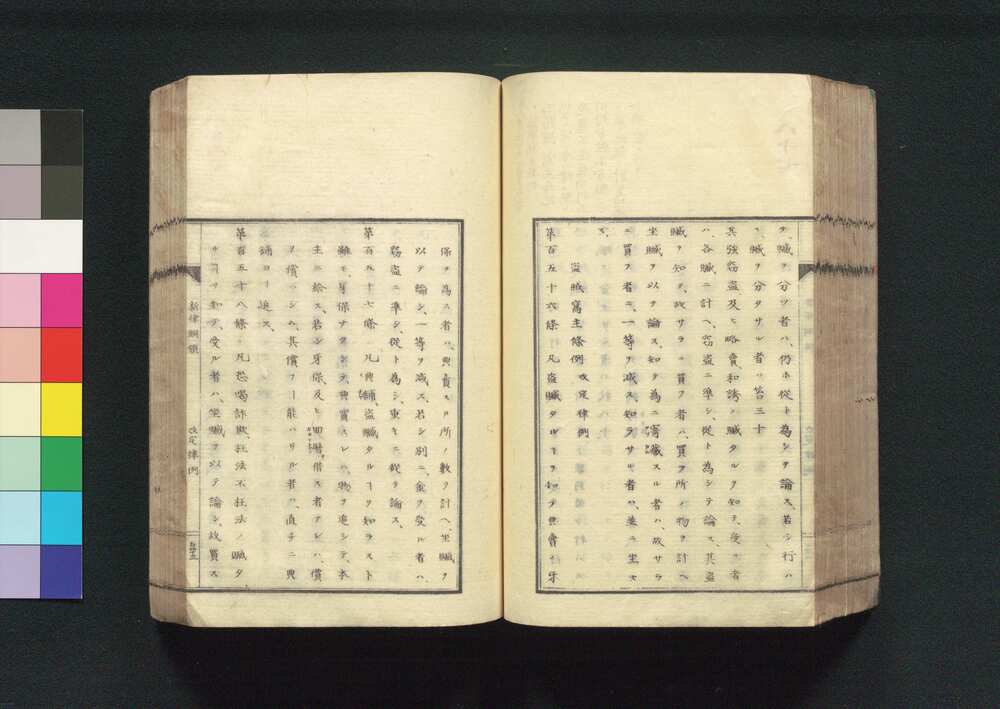 テ、贓ヲ分ツ者ハ、仍ホ從ト為シテ論ス、若シ行ハ
ス、贓ヲ分タサル者ハ笞三十
其強窃盗及ヒ略賣、和誘ノ贓タルヲ知テ、受ル者
ハ、各贓ニ計ヘ、窃盗ニ準シ、從ト為シテ論ス、其盗
贓ヲ知テ、故サラニ買フ者ハ、買フ所ノ物ヲ計ヘ
坐贓ヲ以テ論ス、知テ為ニ寄藏スル者ハ、故サラ
ニ買フ者ニ、一等ヲ減ス、知ラサル者ハ、並ニ坐セ
ス、
盗賊窩主條例 改定律例
第百五十六條 凡盗贓タルヿヲ知テ典賣ノ牙
保ヲ為ス者ハ、典賣スル所ノ數ヲ計ヘ、坐贓ヲ
以テ論シ、一等ヲ減ス、若シ別ニ、金ヲ受ル者ハ、
窃盗ニ準シ、從ト為シ、重キニ從テ論ス、
第百五十七條 凡典舗、盗贓タルヿヲ知ラスト
雖モ、牙保ナクシテ典賣スレハ、物ヲ追シテ本
主ニ給ス、若シ牙保、及ヒ 借ス者アレハ、償
ヲ償ハシム、其償フヿ能ハサル者ハ、直チニ典
舗ヨリ追ス、
第百五十八條 凡恐喝詐欺、枉法不枉法ノ贓タ
ルヿヲ知テ、受ル者ハ、坐贓ヲ以テ論シ、故買ス
新律綱領 改定律例